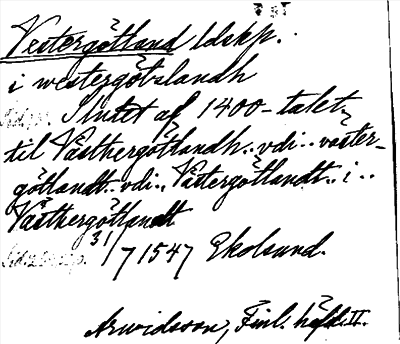 Vestergötland ldskp.
i westergötslandh
Slutet af 1400-talet
til Västhergötlandh..vdi..väster-
götlandt..vdi..Västergötlandt..i..
Västhergötlandt
31/7 1547 Ekolsund.
Arwidsson, Finl. häfd. II.